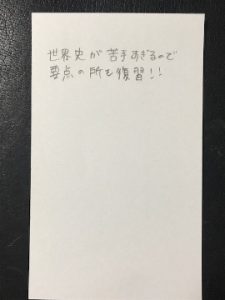 世界史が苦手すぎるので
要点の所を復習!!